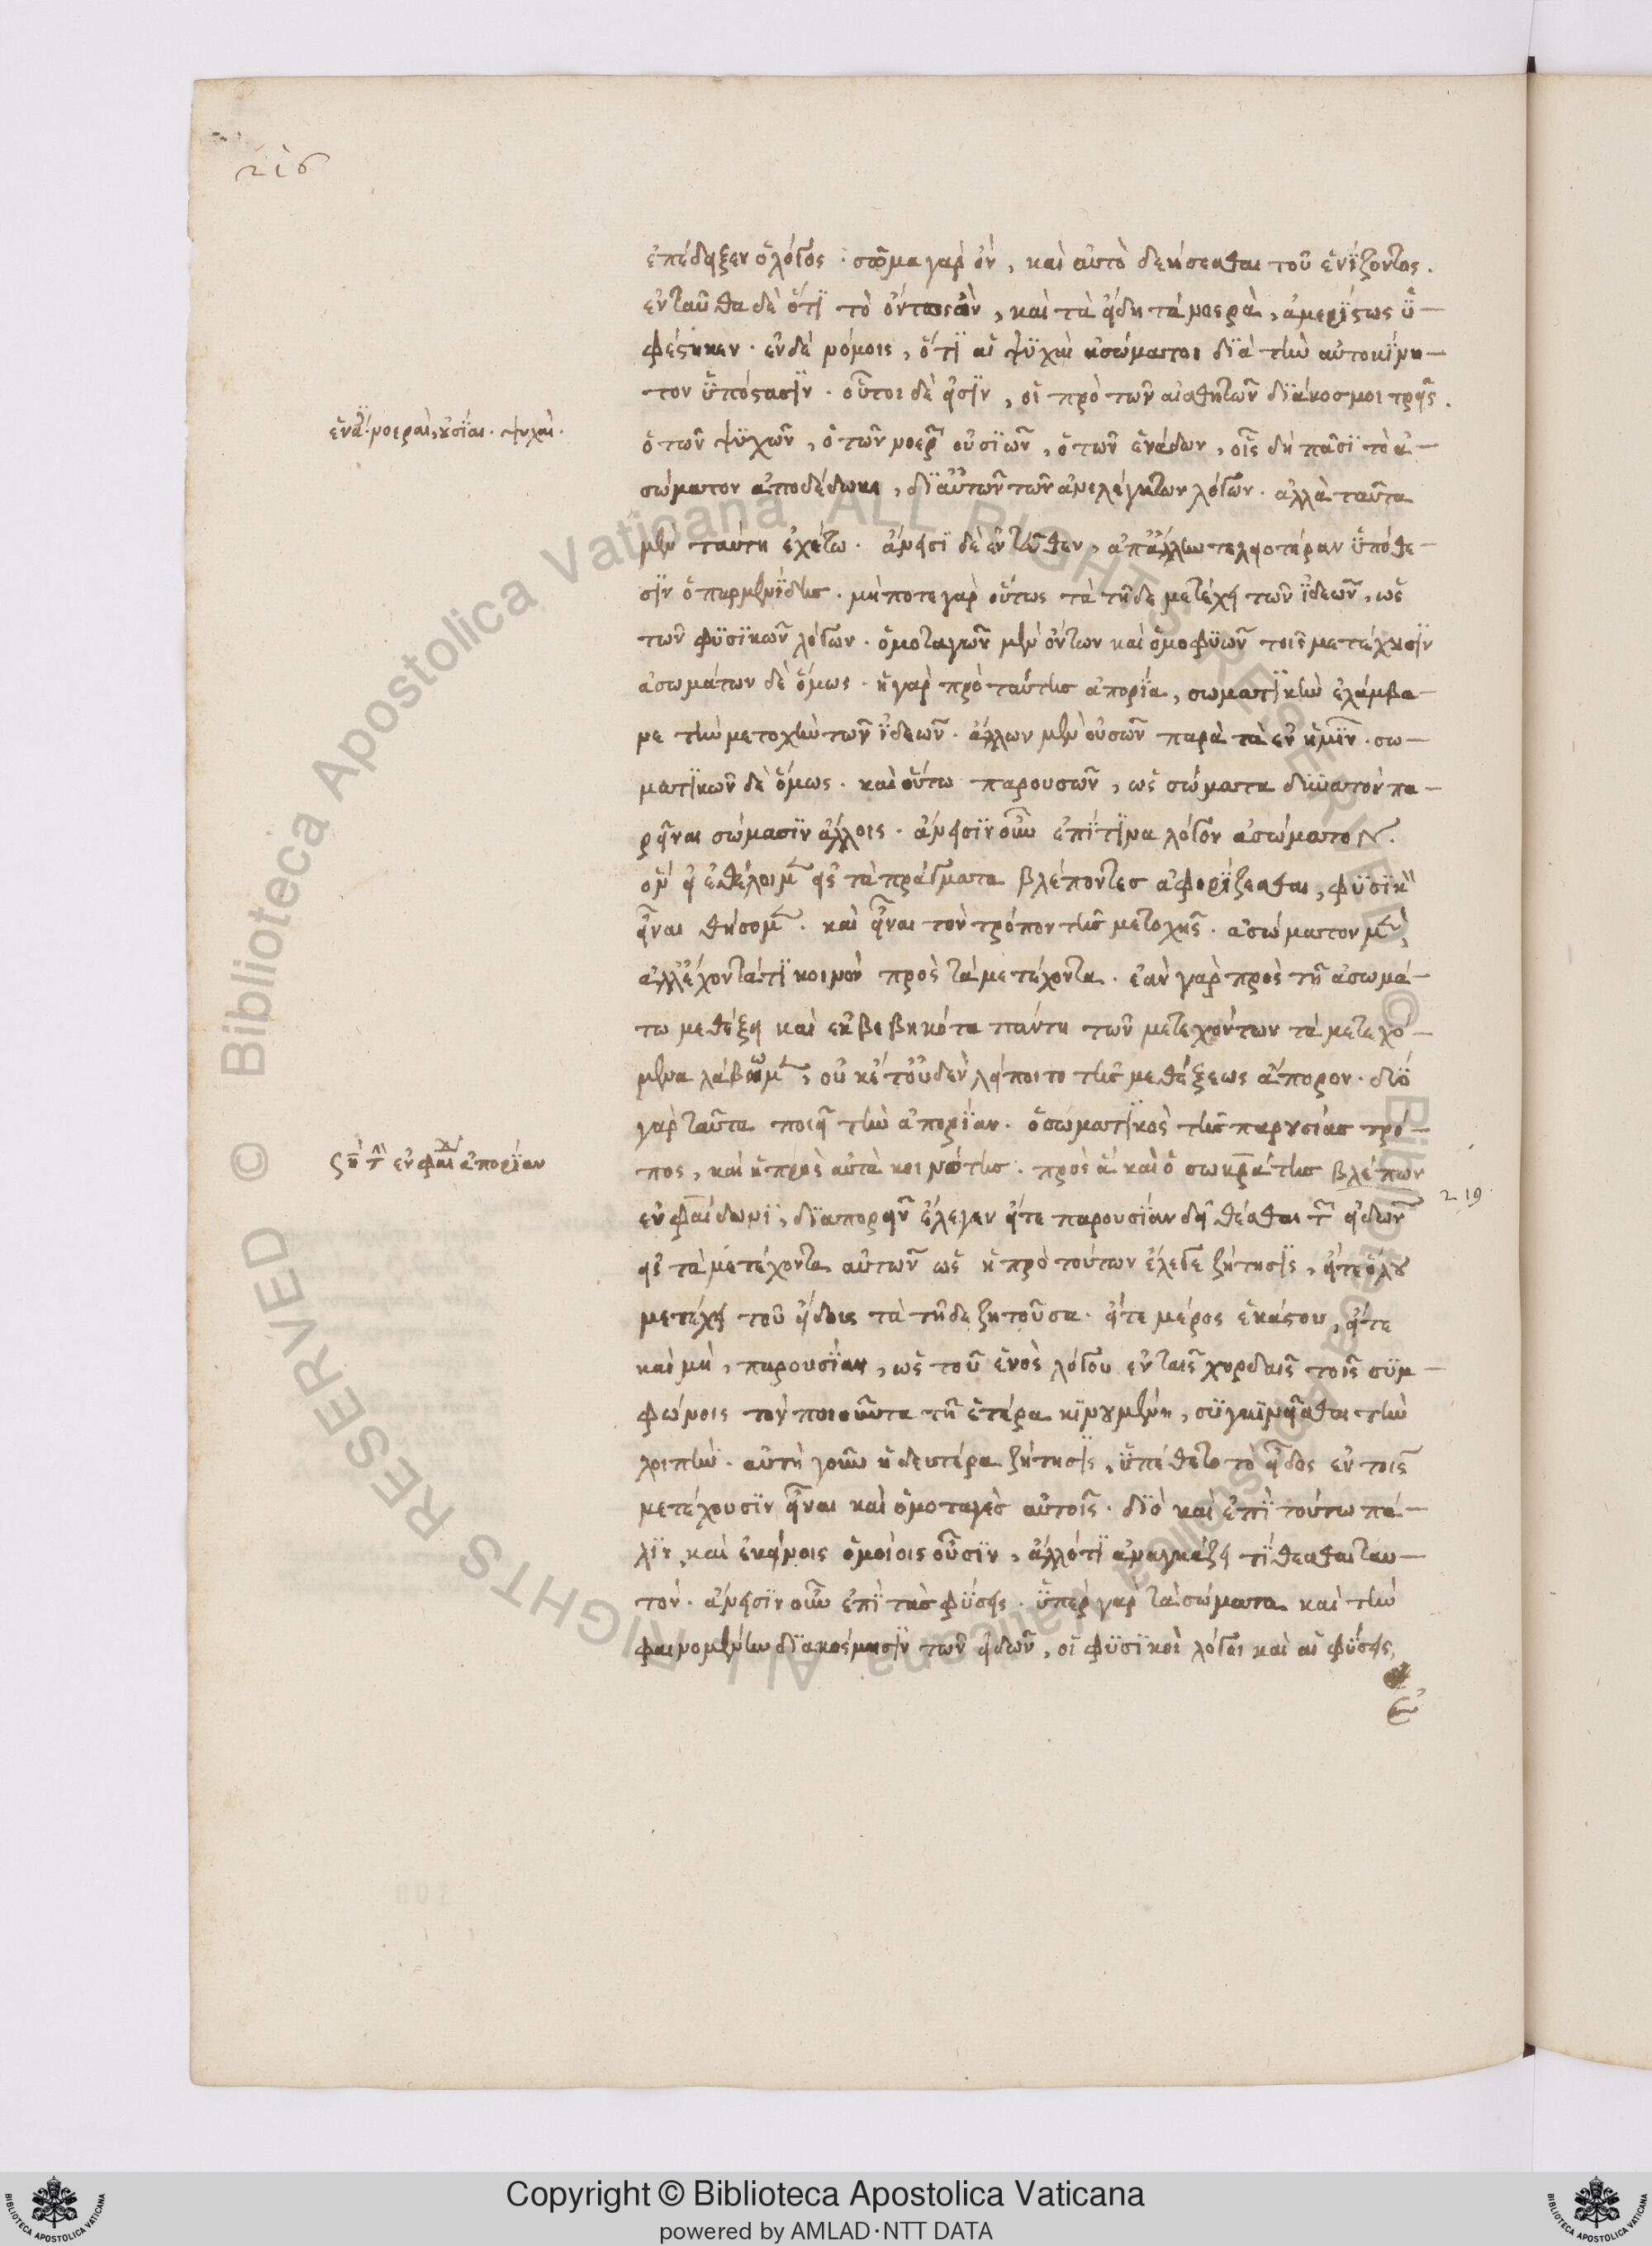 216
ἐπέδειξεν ὁ λόγος · σῶμα γὰρ ὄν, καὶ αὐτὸ δεήσεσθαι τοῦ ἑνίζοντος.
ἐνταῦθα δὲ ὅτι τὸ ὄντως ὂν, καὶ τὰ εἴδη τὰ νοερὰ, ἀμερίστως ὑ-
φέστηκεν · ἐν δὲ νόμοις, ὅτι αἱ ψυχαὶ ἀσώματοι διὰ τὴν αὐτοκίνη-
τον ὑπόστασιν · οὗτοι δὲ εἰσὶν, οἱ πρὸ τῶν αἰσθητῶν διάκοσμοι τρεῖς.
ἑνάδες · νοεραὶ οὐσίαι · ψυχαὶ ·
ὁ τῶν ψυχῶν, ὁ τῶν νοερῶν οὐσιῶν, ὁ τῶν ἑνάδων, οἷς δὴ πᾶσι τὸ ἀ-
σώματον ἀποδέδωκε, δι' αὐτῶν τῶν ἀνελέγκτων λόγων · ἀλλὰ ταῦτα
μὲν ταύτη ἐχέτω · ἄνεισι δὲ ἐντεῦθεν, ἐπ' ἄλλην τελειοτέραν ὑπόθε-
σιν ὁ παρμενίδης · μήποτε γὰρ οὕτως τὰ τῇδε μετέχει τῶν ἰδεῶν, ὡς
τῶν φυσικῶν λόγων · ὁμοταγῶν μὲν ὄντων καὶ ὁμοφυῶν τοῖς μετέχουσιν
ἀσωμάτων δὲ ὅμως · ἡ γὰρ πρὸ ταύτης ἀπορία, σωματικὴν ἐλάμβα-
νε τὴν μετοχὴν τῶν ἰδεῶν · ἄλλων μὲν οὐσῶν παρὰ τὰ ἐν ἡμῖν · σω-
ματικῶν δὲ ὅμως · καὶ οὕτω παρουσῶν, ὡς σώματα δυνατὸν πα-
ρεῖναι σώμασιν ἄλλοις · ἄνεισιν οὖν ἐπί τινα λόγον ἀσώματον.
ὃν εἰ ἐθέλοιμεν εἰς τὰ πράγματα βλέποντες ἀφορίζεσθαι, φυσικὸν
εἶναι θήσομεν · καὶ εἶναι τὸν τρόπον τῆς μετοχῆς · ἀσώματον μὲν,
ἀλλ' ἔχοντά τι κοινὸν πρὸς τὰ μετέχοντα · ἐὰν γὰρ πρὸς τῇ ἀσωμά-
τω μεθέξει καὶ ἐκβεβηκότα πάντη τῶν μετεχόντων τὰ μετεχό-
μενα λάβωμεν, οὐκέτ' οὐδὲν λείποιτο τῆς μεθέξεως ἄπορον · δύο
γὰρ ταῦτα ποιεῖ τὴν ἀπορίαν · ὁ σωματικὸς τῆς παρουσίας τρό-
ἐν φαίδ ἀπορίαν
πος, καὶ ἡ πρὸς αὐτὰ κοινότης · πρὸς ἃ καὶ ὁ σωκράτης βλέπων
219
ἐν φαίδωνι, διαπορεῖν ἔλεγεν εἴτε παρουσίαν δεῖ θέσθαι τῶν εἰδῶν
εἰς τὰ μετέχοντα αὐτῶν ὡς ἡ πρὸ τούτων ἔλεγε ζήτησις, εἴτε ὅλου
μετέχει τοῦ εἴδους τὰ τῇδε ζητοῦσα · εἴτε μέρος ἑκάστου, εἴτε
καὶ μὴ, παρουσίαν, ὡς τοῦ ἑνὸς λόγου ἐν ταῖς χορδαῖς τοῖς συμ-
φώνοις τὸν ποιοῦντα τῇ ἑτέρα κινουμένη, συγκινεῖσθαι τὴν
λοιπὴν · αὐτὴ γοῦν ἡ δευτέρα ζήτησις, ὑπέθετο τὸ εἶδος ἐν τοῖς
μετέχουσιν εἶναι καὶ ὁμοταγὲς αὐτοῖς · διὸ καὶ ἐπὶ τούτω πά-
λιν καὶ ἐκείνοις ὁμοίοις οὖσιν, ἄλλό τι ἀναγκάζει τίθεσθαι ταυ-
τόν · ἄνεισιν οὖν ἐπὶ τὰς φύσεις · ὑπὲρ γὰρ τὰ σώματα καὶ τὴν
φαινομένην διακόσμησιν τῶν εἰδῶν, οἱ φυσικοὶ λόγοι καὶ αἱ φύσεις
Copyright © Biblioteca Apostolica Vaticana
powered by AMLAD·NTT DATA